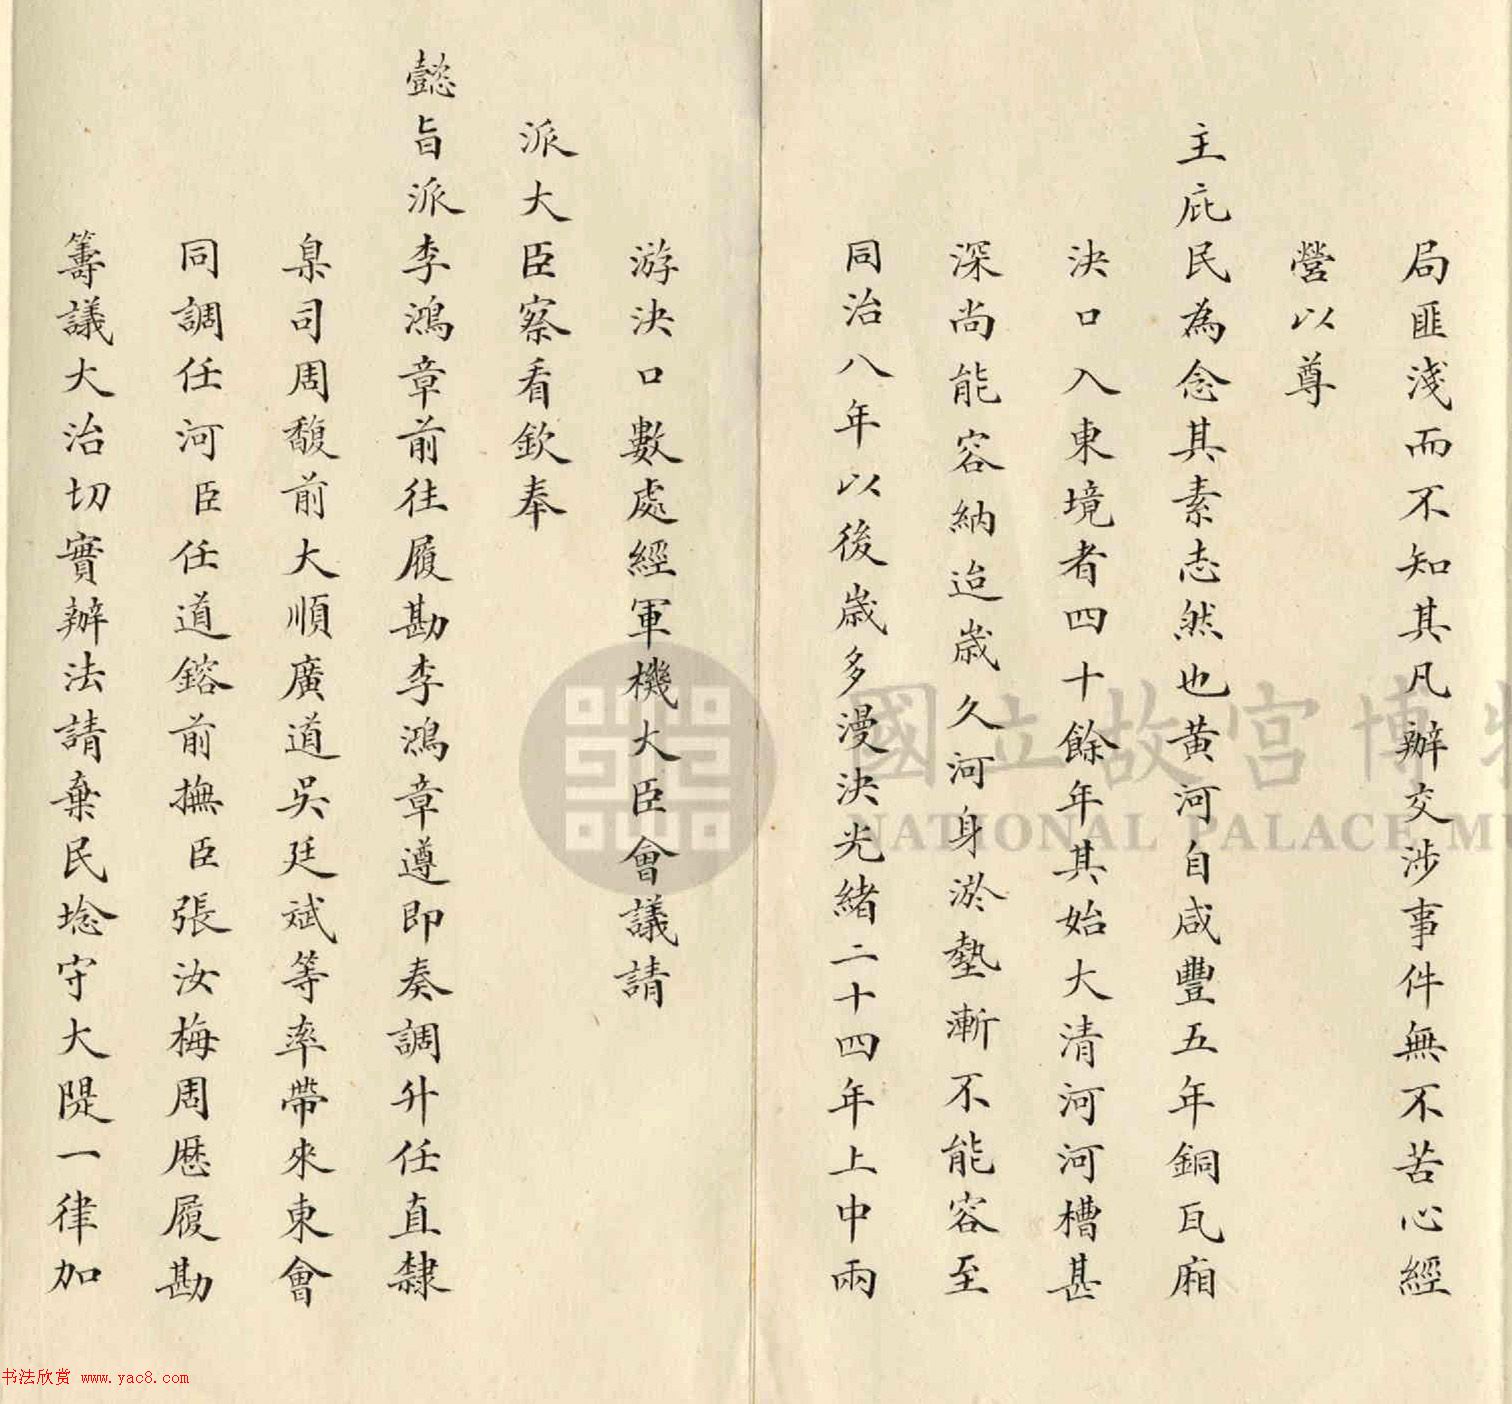 局匪淺而不知其凡辦交涉事件無不苦心經
營以尊
主庇民為念其素志然也黃河自咸豐五年銅瓦廂
決口入東境者四十餘年其始大清河河槽甚
深尚能容納迨歲久河身淤墊漸不能容至
同治八年以後歲多漫決光緒二十四年上中兩
游決口數處經軍機大臣會議請
派大臣察看欽奉
懿旨派李鴻章前往履勘李鴻章遵即奏調升任直隸
臬司周馥前大順廣道吳廷斌等率帶來東會
同調任河臣任道鎔前撫臣張汝梅周歷履勘
籌議大治切實辦法請棄民埝守大隄一律加
國立故宮博物
NATIONAL PALACE MU
书法欣赏 www.yac8.com